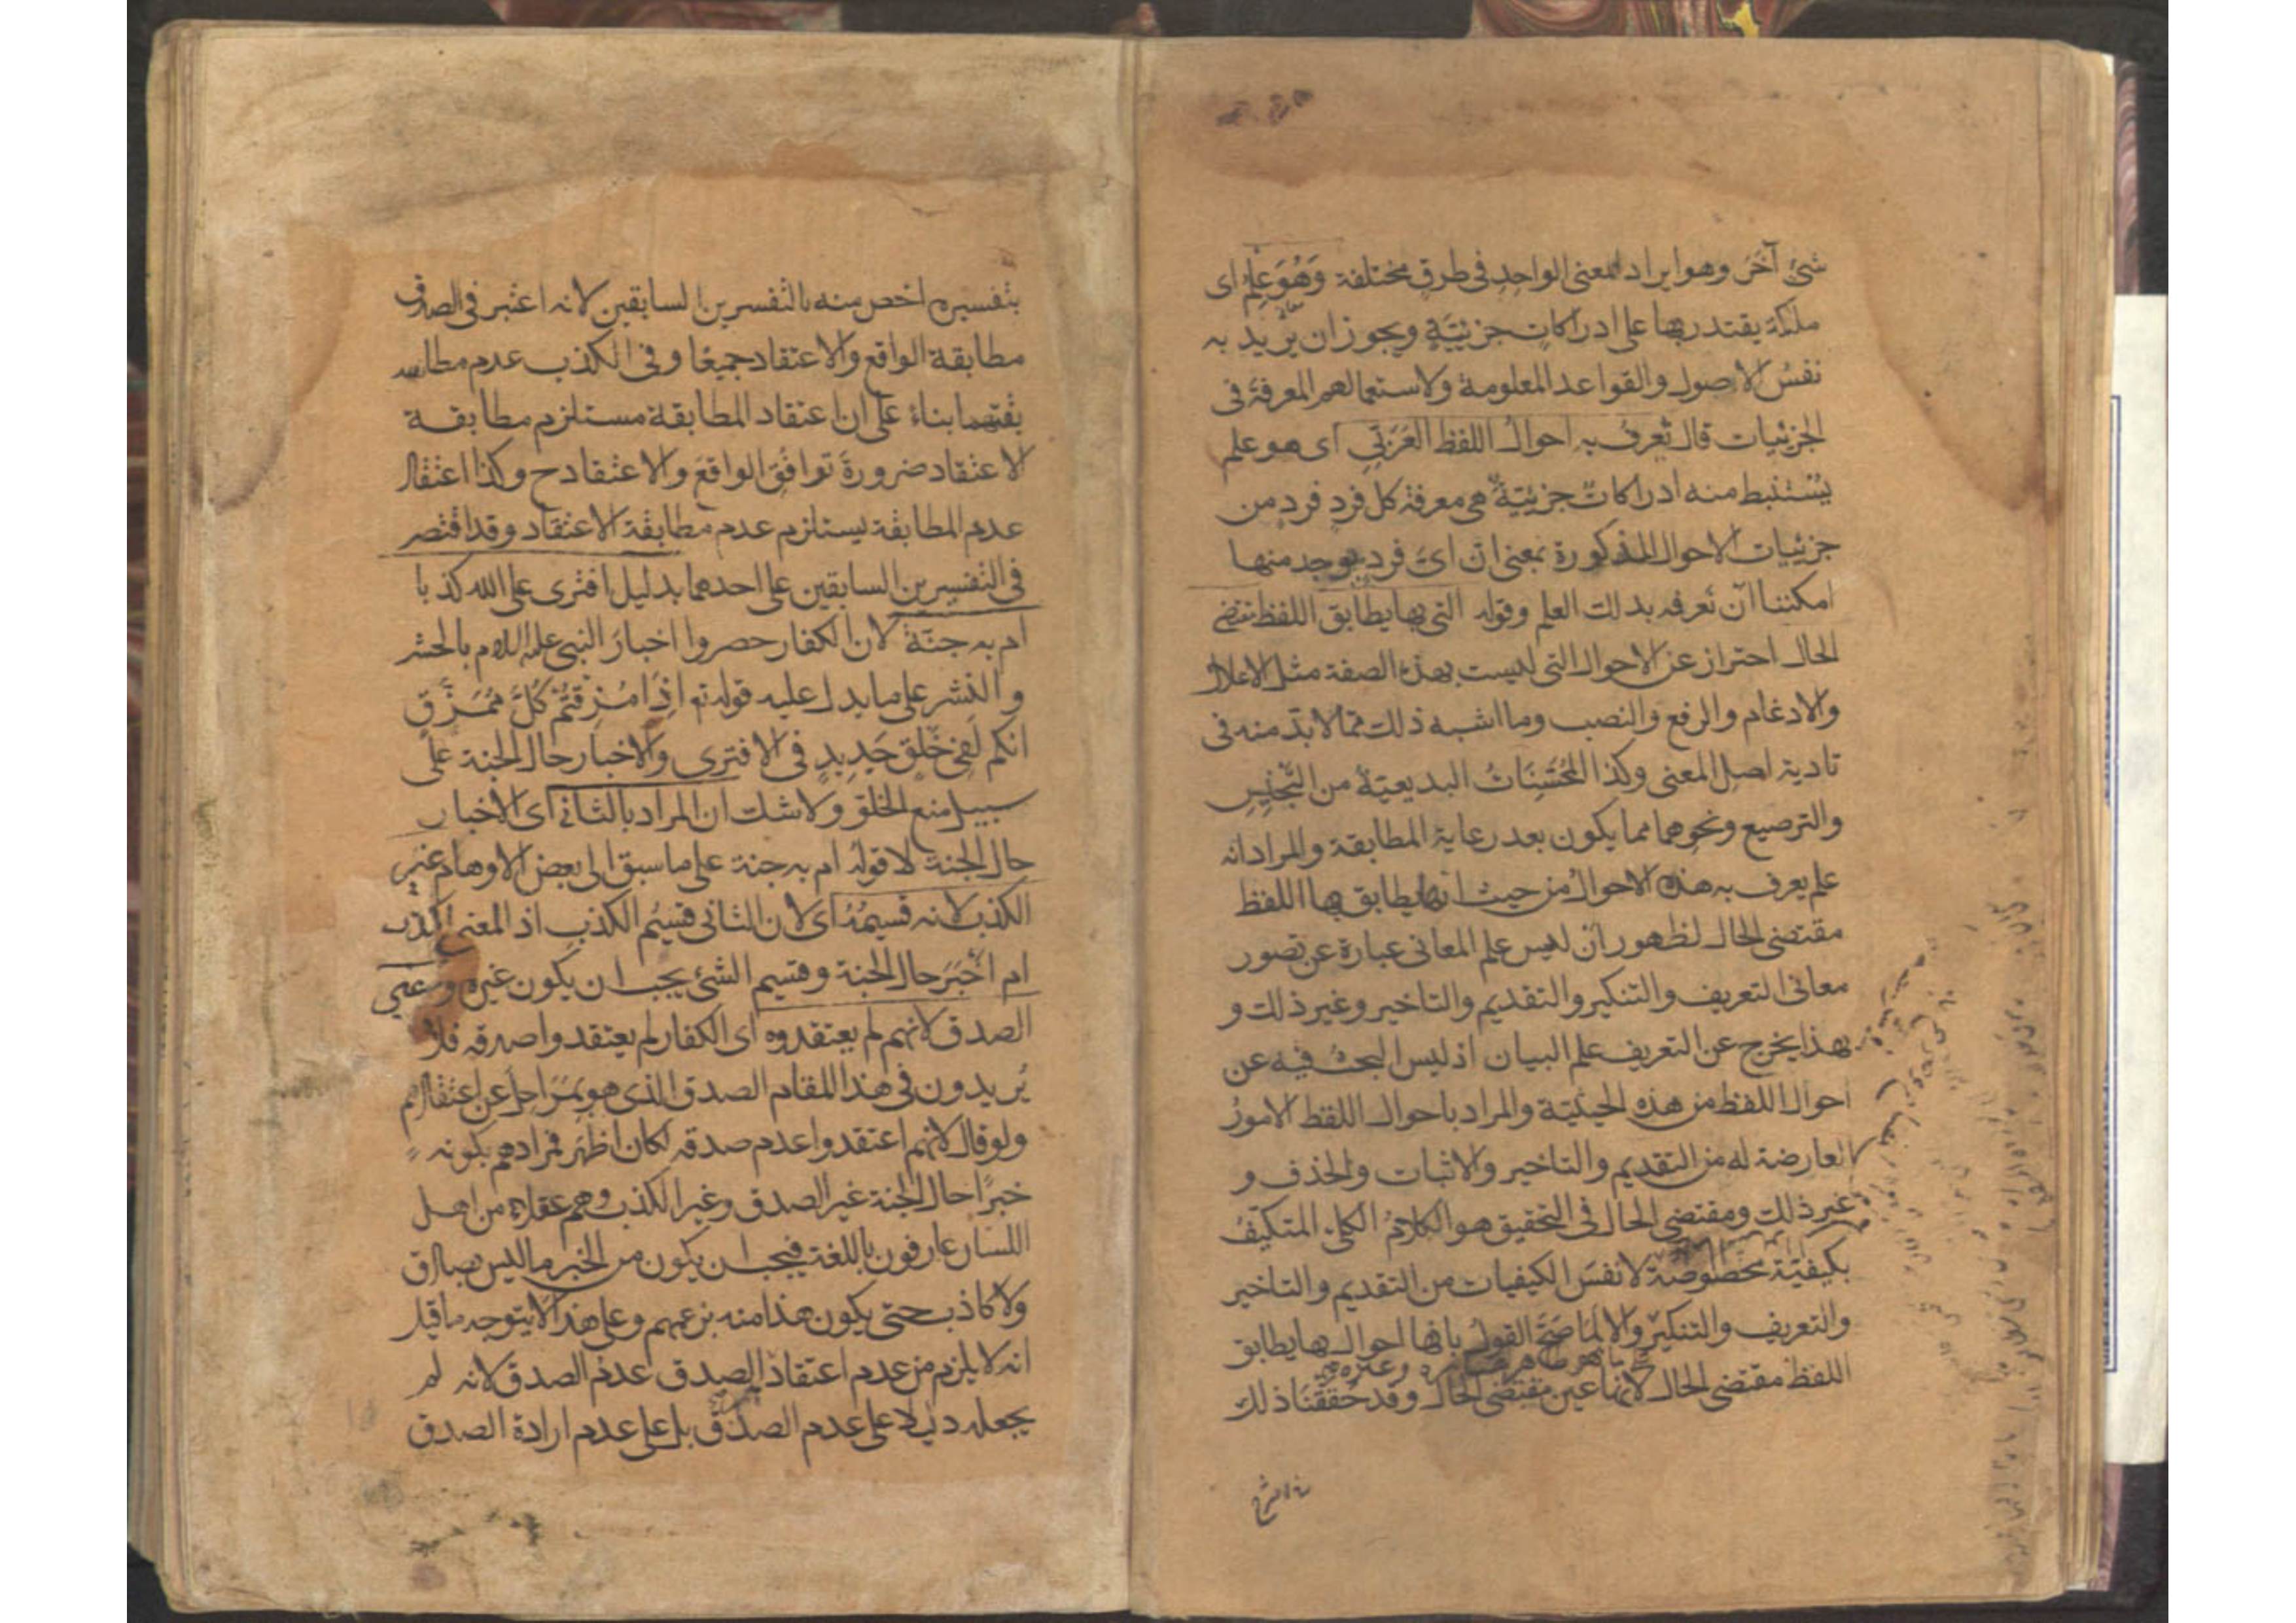 شئ آخر وهو ايراد المعنى الواحد فى طرق مختلفة وَهُوَ عِلمٌ اى
ملكة يقتدر بها على ادراكات جزئيّة ويجوز ان يريد به
نفسُ الاصول والقواعد المعلومة ولاستعمالهم المعرفة فى
الجزئيات قال يُعرفُ به احوالُ اللفظ العَرَبّى اى هو علم
يُستنبط منه ادراكاتٌ جزئيّةٌ هى معرفة كل فردٍ فردٍ من
جزئيات الاحوال المذكورة بمعنى انّ اىّ فردٍ يوجد منها
امكننا ان نعرفه بذلك العلم وقوله التى بها يطابق اللفظ مقتضى
الحال احتراز عن الاحوال التى ليست بهذه الصفة مثل الاعلال
والادغام والرفع والنصب وما اشبه ذلك ممّا لابدّ منه فى
تادية اصل المعنى وكذا المُحسّنَاتُ البديعيّة من التّجنيسِ
والترصيع ونحوهما مما يكون بعد رعاية المطابقة والمراد انه
علم يعرف به هذه الاحوالُ من حيث انها يطابق بها اللفظ
مقتضى الحال لظهور ان ليس علم المعانى عبارة عن تصور
معانى التعريف والتنكير والتقديم والتاخير وغير ذلك و
بهذا يخرج عن التعريف علم البيان اذ ليس البحثُ فيه عن
احوال اللفظ من هذه الحيثيّة والمراد باحوال اللفظ الامورُ
العارضة له من التقديم والتاخير والاثبات والحذف و
غير ذلك ومقتضى الحال فى التحقيق هو الكلامُ الكلىّ المتكيّفُ
بكيفيّة مخصُوصَة لا نفسَ الكيفيات من التقديم والتاخير
والتعريف والتنكير والا لمَا صَحّ القولُ بانها احوال بها يطابق
اللفظ مقتضى الحال لانها عين مقتضى الحال وقد حَققنَا ذلك
بتفسيره اخص منه بالتفسيرين السابقين لانه اعتبر فى الصدق
مطابقة الواقع والاعتقاد جميعًا وفى الكذب عدم
بقتهما بناءً على ان اعتقاد المطابقة مستلزم مطابقة
الاعتقاد ضرورةَ توافُقِ الواقعَ والاعتقاد ح وكذا اعتقاد
عدم المطابقة يستلزم عدم مطابقة الاعتقاد وقد اقتصر
فى التفسيرين السابقين على احدهما بدليل افترى على الله كذبا
ام به جنّة لان الكفار حصروا اخبارَ النبى عليه السلام بالحشر
والنشر على ما يدل عليه قوله تع اذَا مُزِقتُمْ كُلَّ مُمَزَّقٍ
انكم لَفِى خَلقٍ جَدِيدٍ فى الافترى والاخبار حال الجنة على
سبيل منع الخلق ولا شك ان المراد بالثانى اى الاخبار
حال الجنة لا قوله ام به جنة على ما سبق الى بعض الاوهام غير
الكذب لانه قسيمُهُ اى لان الثانى قسيمُ الكذبِ اذ المعنى اكذب
ام اَخْبَرَ حال الجنة وقسيم الشئ يجب ان يكون غيره وغير
الصدق لانهم لم يعتقدوه اى الكفار لم يعتقدوا صدقه فلا
يُريدون فى هذا المقام الصدق الذى هو بمَرَاحِلَ عن اعتقادهم
ولو قال لانهم اعتقدوا عدم صدقه لكان اظهر فمرادهم بكونه
خبرًا حال الجنة غير الصدق وغير الكذب وهم عقلاء من اهل
اللسان عارفون باللغة فيجب ان يكون من الخبر ما ليس بصادق
ولا كاذب حتى يكون هذا منه بزعمهم وعلى هذا لا يتوجه ما قيل
انه لا يلزم من عدم اعتقاد الصدق عدمُ الصدق لانه لم
يجعله دليلا على عدم الصدق بل على عدم ارادة الصدق